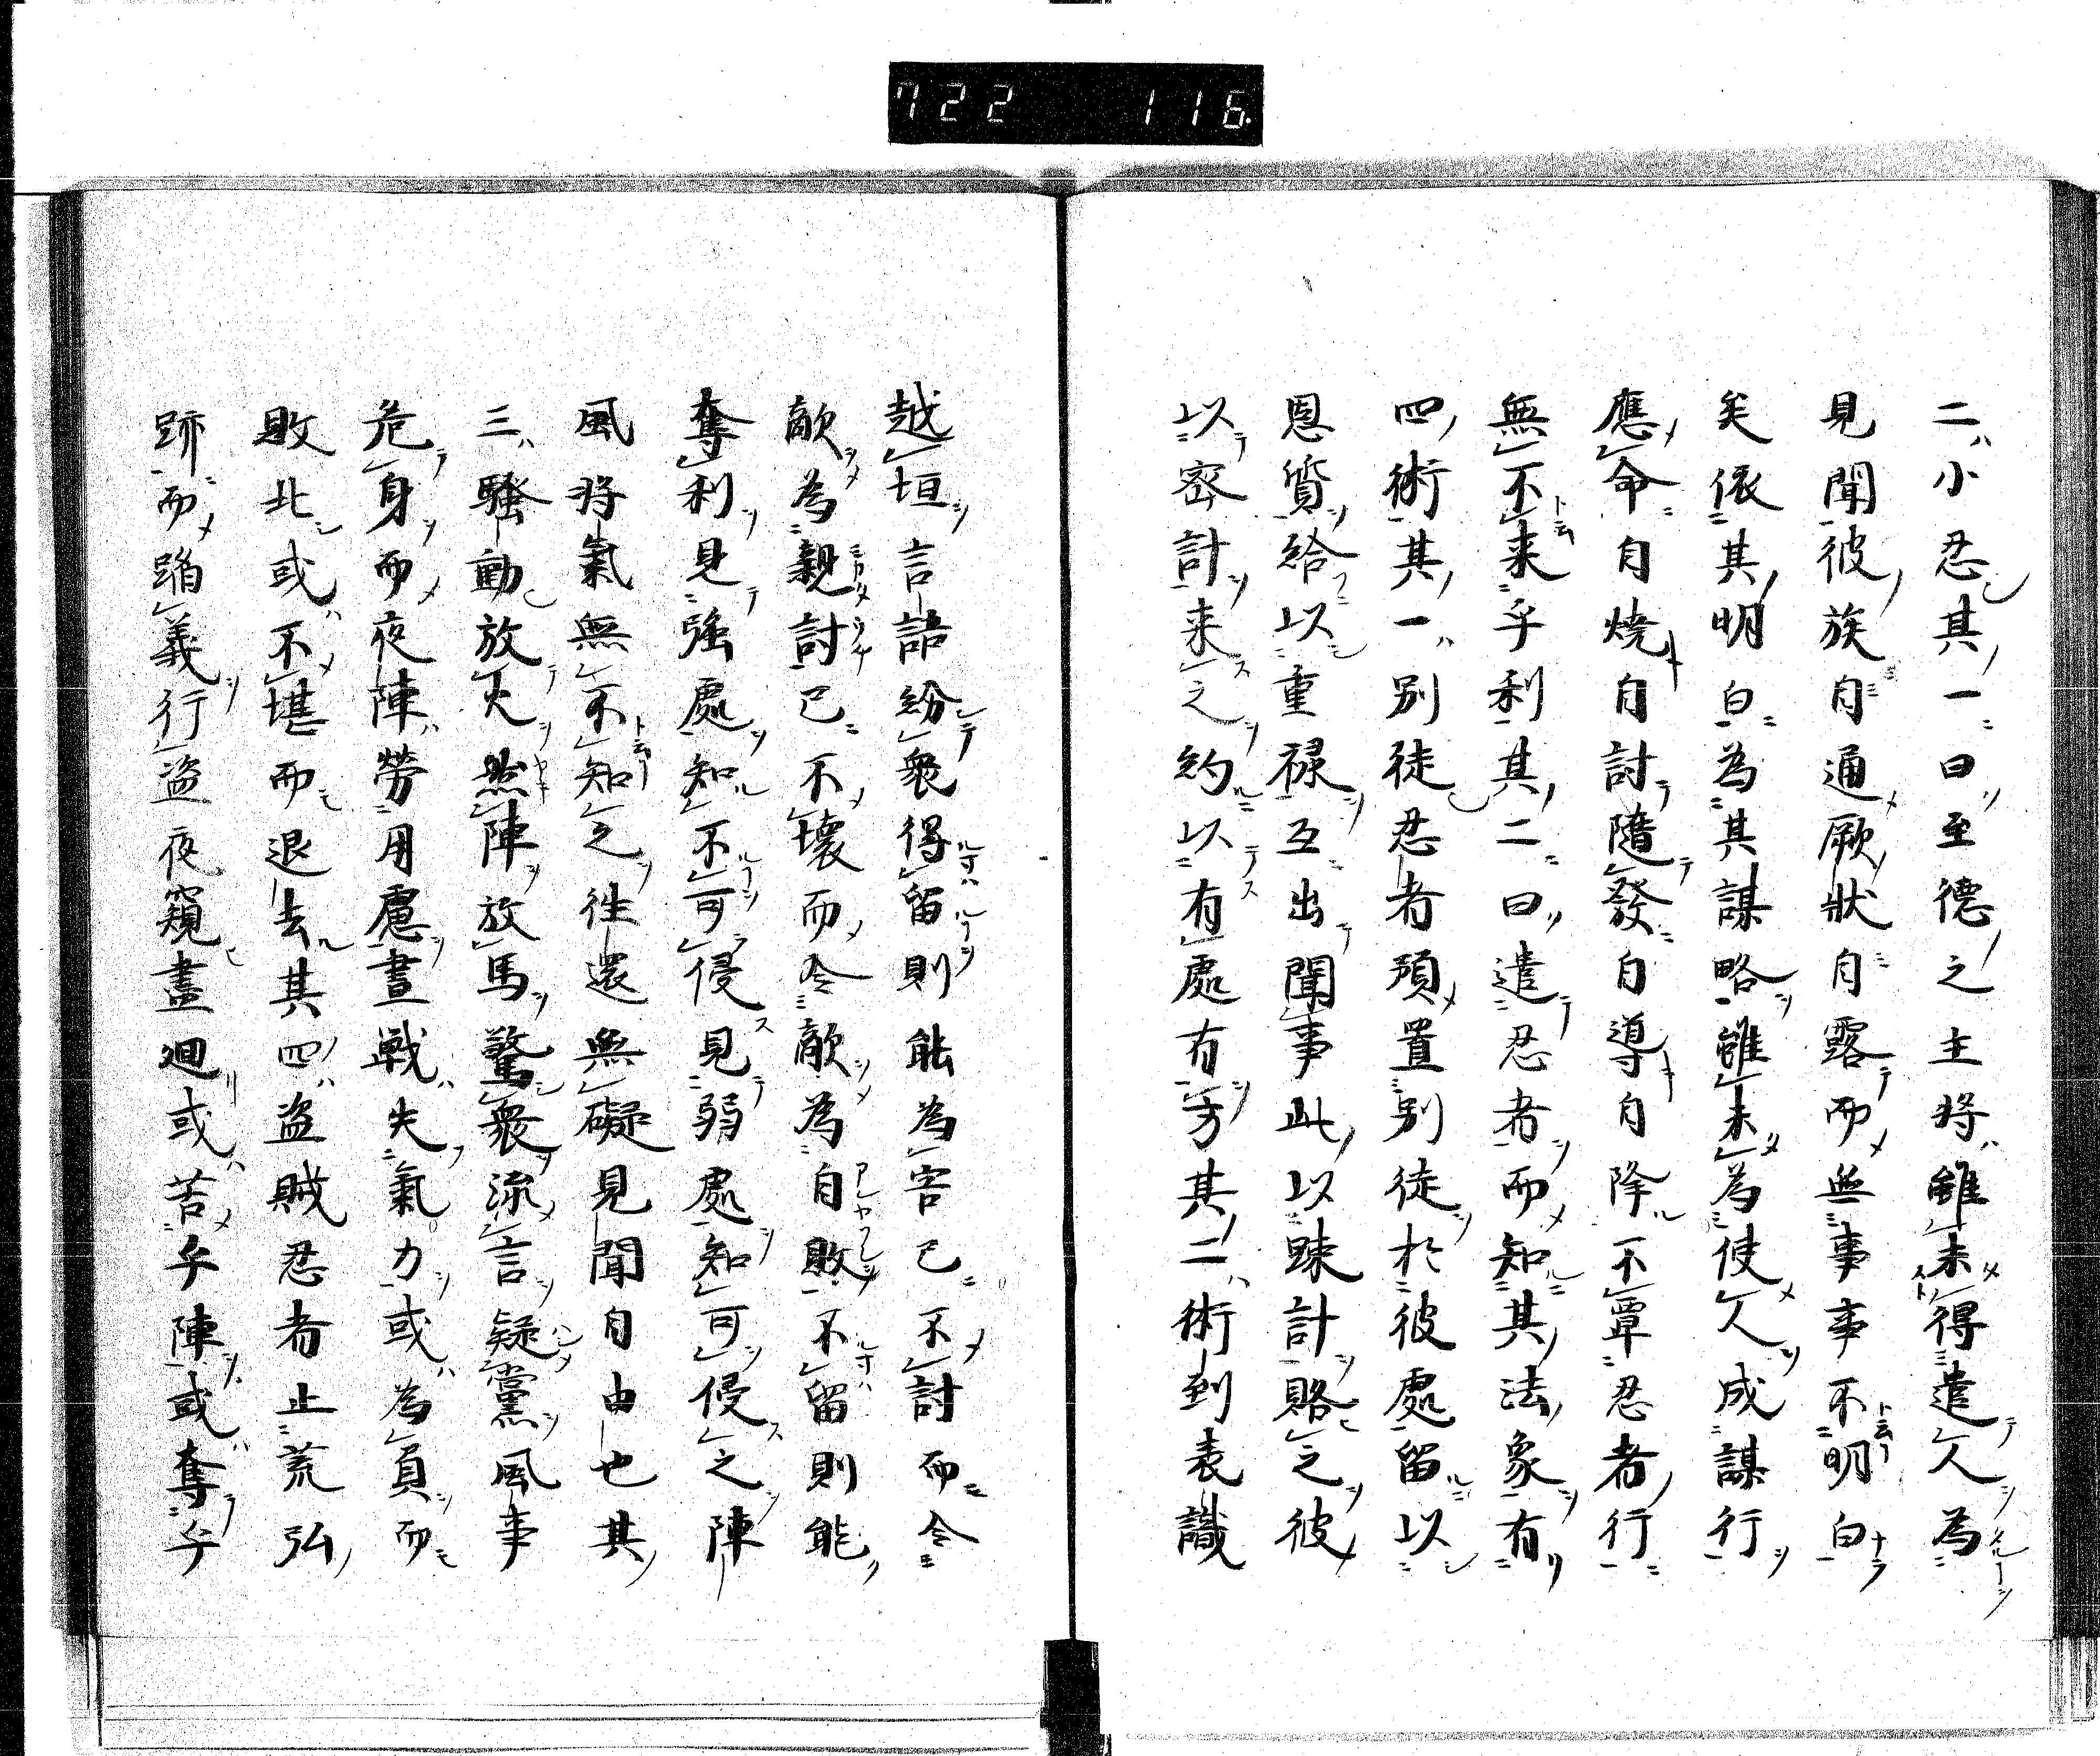 722 116.
二小忍其一曰至德之主将雖未得遣人為
見聞彼族自通厥狀自露而無事事不明白
矣依其明白為其謀略雖未為使人成謀行
應命自焼自討隨發自導自降不覃忍者行
無不来乎利其二曰遣忍者而知其法象有
四術其一別徒忍者預置別徒於彼處留以
恩質給以重禄互出聞事此以踈計賂之彼
以密計来之約以有處有方其二術到表識
越垣言語紛衆得留則能為害已不討而令
敵為親討已不壞而令敵為自敗不留則能
奪利見強處知不可侵見弱處知可侵之陣
風将氣無不知之往還無礙見聞自由也其
三騒動放火燃陣放馬驚衆流言疑黨風事
危身而夜陣勞用慮晝戰失氣力或為負而
敗北或不堪而退去其四盗賊忍者止荒弘
跡而蹈義行盗夜窺晝廻或苦乎陣或奪乎